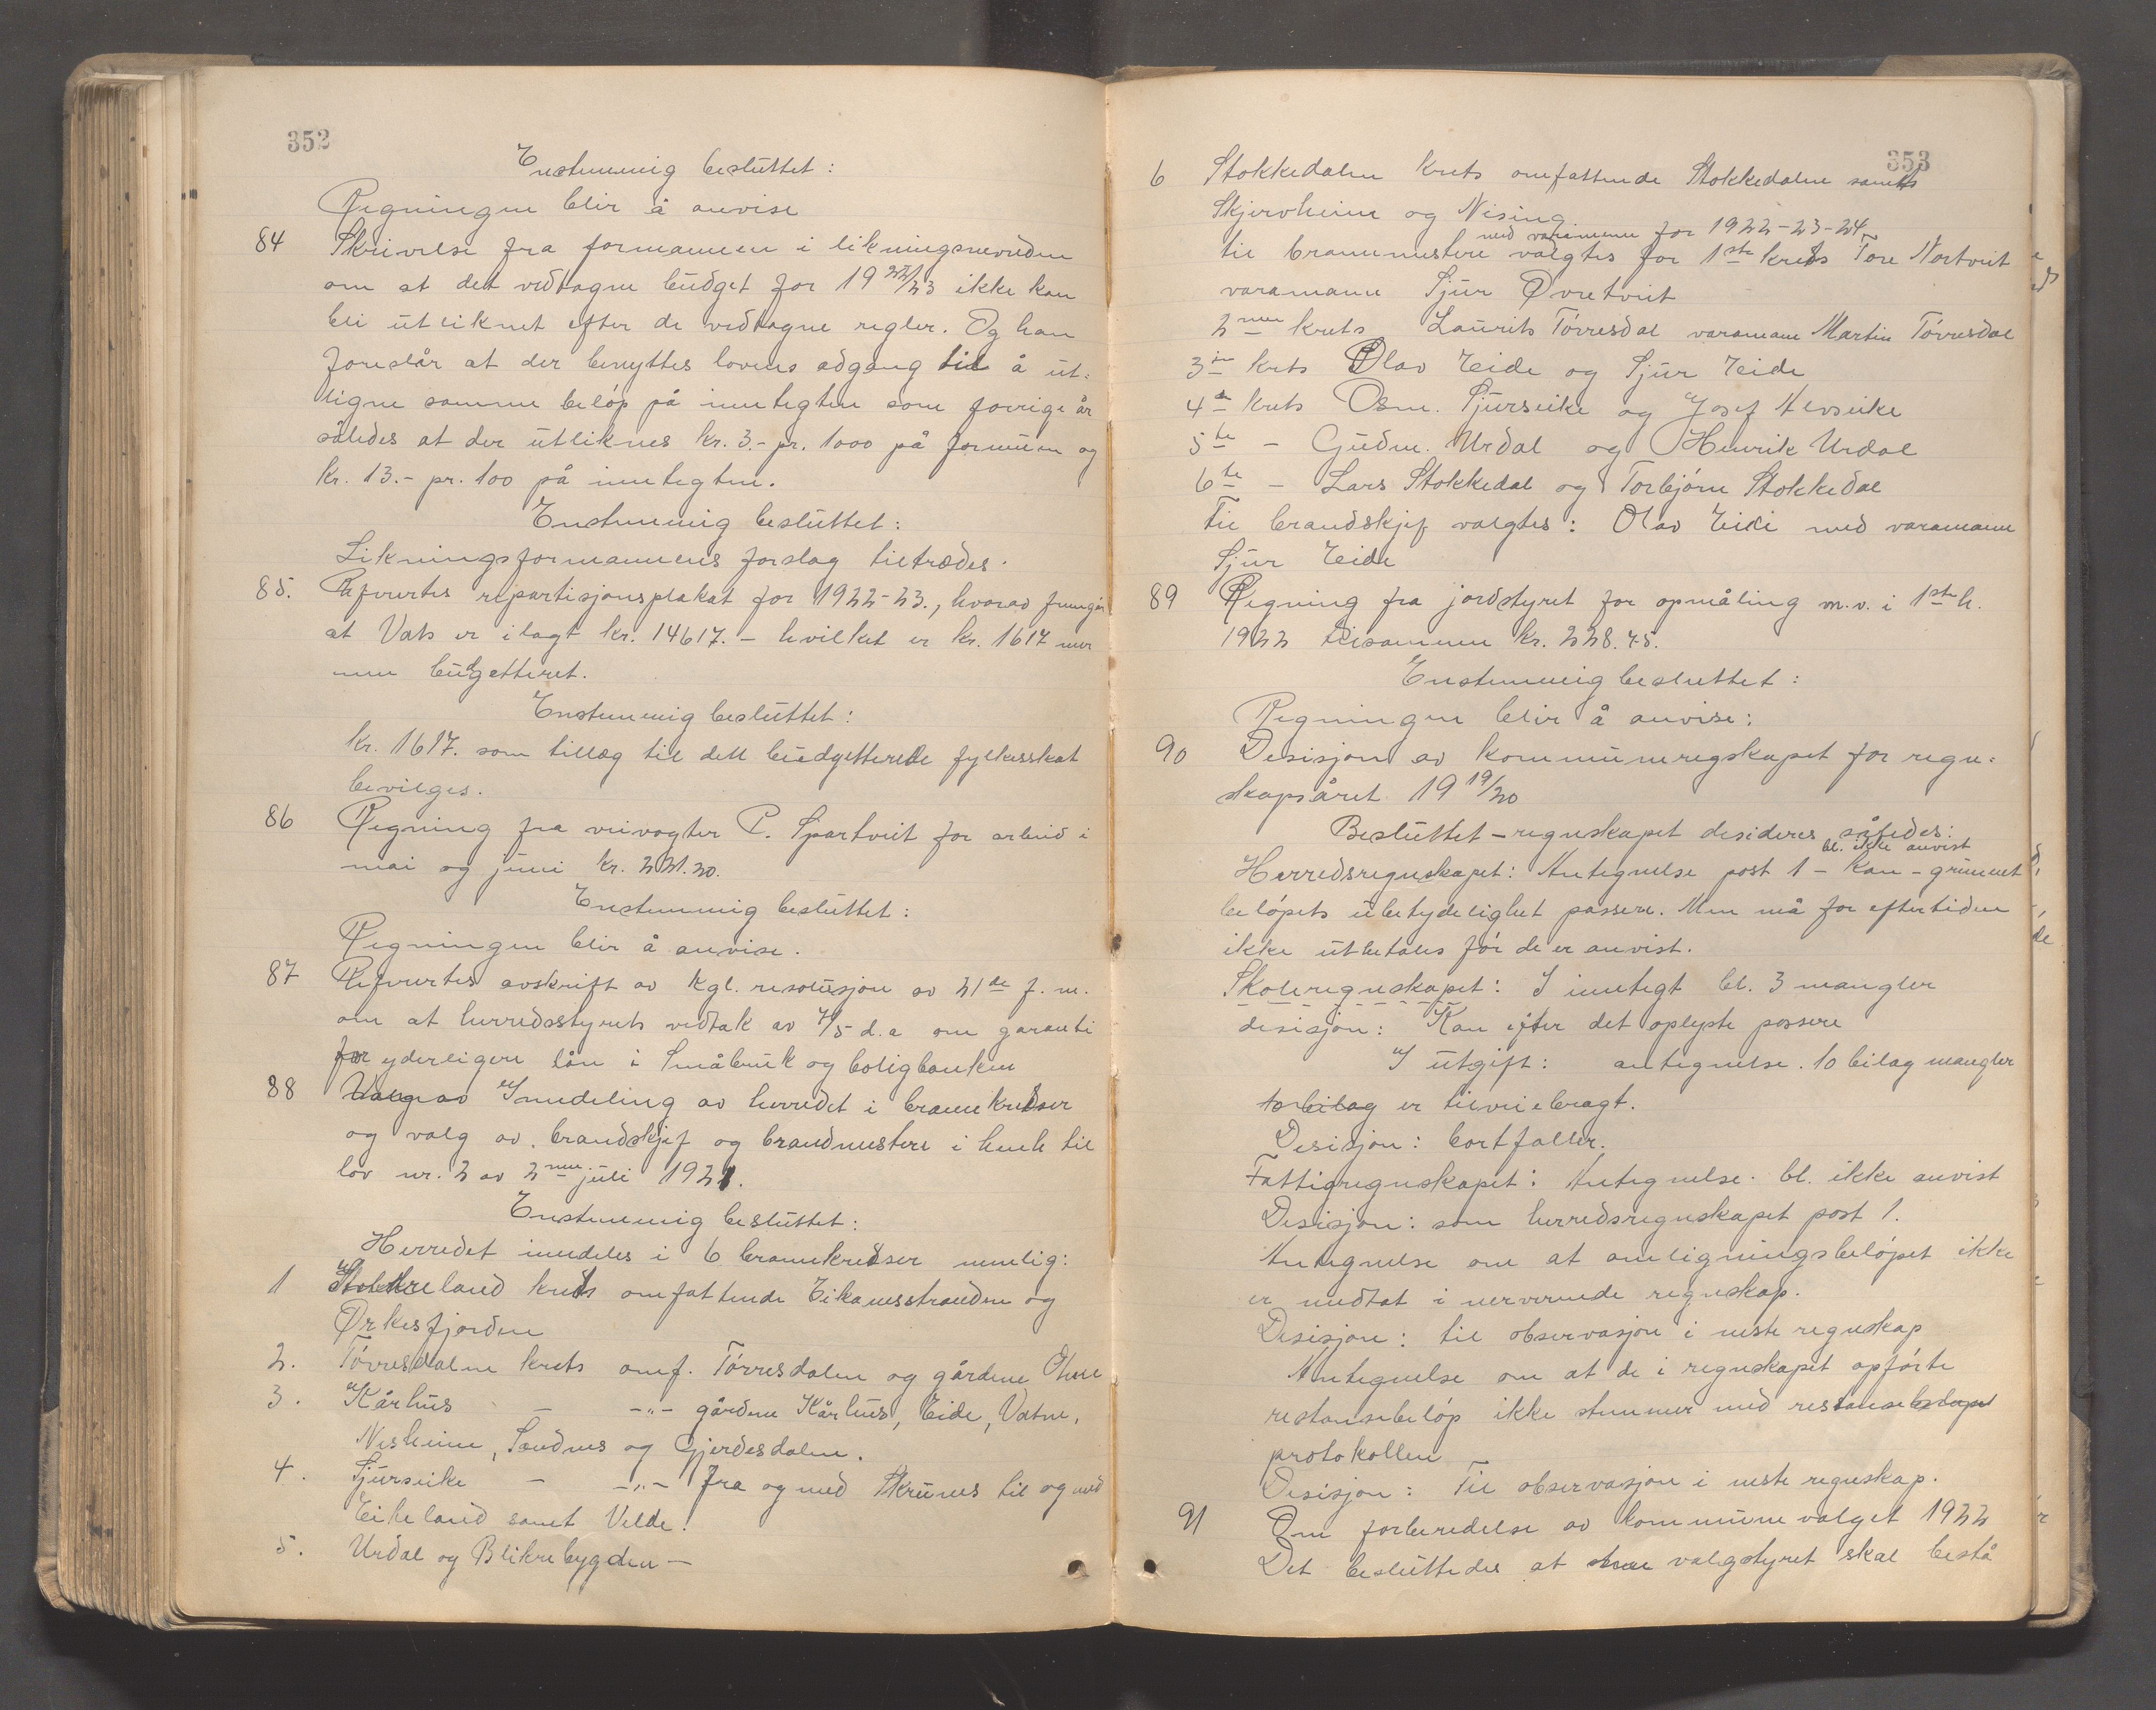 352
Enstemmig besluttet:
Regningen blir å anvise
84 Skrivelse fra formannen i likningsnevnden
om at det vedtagne budget for 19 22/23 ikke kan
bli utliknet efter de vedtagne regler. Og han
foreslår at der benyttes lovens adgang til å ut-
ligne samme beløp på inntegten som forrige år
således at der utliknes kr. 3.- pr. 1000 på formuen og
kr. 13.- pr. 100 på inntegten.
Enstemmig besluttet:
Likningsformannens forslag tiltrædes.
85. Refvertes repartisjonsplakat for 1922-23., hvorav fremgår
at Vats er ilagt kr. 14617.- hvilket er kr. 1617 mer
enn budgetteret.
Enstemmig besluttet:
kr. 1617. som tillæg til dett budgetterede fylkesskat
bevilges.
86 Regning fra veivogter P. Spartveit for arbeid i
mai og juni kr. 221.20.
Enstemmig besluttet:
Regningen blir å anvise.
87 Refvertes avskrift av kgl. resolusjon av 21de f.m.
om at herredsstyrets vedtak av 4/5 d.a om garanti
for yderligere lån i Småbruk og boligbanken
88 Valg av Inndeling av herredet i brannkredser
og valg av brandskjef og brandmestere i henh til
lov nr. 2 av 2nen juli 1921.
Enstemmig besluttet:
Herredet inndeles i 6 brannkredser nemlig:
1 land krets omfattende Eikanesstranden og
Ørkesfjorden
2. Tørresdalen krets omf. Tørresdalen og gårdene Ohne
3. Kårhus - -"- gårdene Kårhus, Eide, Vatne,
Nesheim, Sandnes og Gjerdesdalen.
4. Sjurseike - -"- fra og med Skrunes til og med
Eikeland samt Velde.
5. Urdal og Blikrebygden -
353
6 Stokkedalen krets omfattende Stokkedalen samt
Skjervheim og Nising
med varamenn for 1922-23-24
til brannmestere valgtes for 1ste krets Tore Nortveit
varamann Sjur Øvretveit
2nen krets Laurits Tørresdal varamann Martin Tørresdal
3je krets Olav Eide og Sjur Eide
4de krets Osm. Sjurseike og Josef Alvseike
5te - Gudm. Urdal og Henrik Urdal
6te - Lars Stokkedal og Torbjørn Stokkedal
Til brandskjef valgtes: Olav Eide med varamann
Sjur Eide
89 Regning fra jordstyret for opmåling m.v. i 1ste h.
1922 tilsammen kr. 228.75.
Enstemmig besluttet:
Regningen blir å anvise:
90 Desisjon av kommuneregskapet for regn-
skapsåret 19 19/20
Besluttet - regnskapet desideres således:
bl. ikke anvist
Herredsregnskapet: Antegnelse post 1 - kan - grunnet
beløpets ubetydelighet passere. Men må for eftertiden
ikke utbetales før de er anvist.
Skoleregnskapet: I inntegt bl. 3 mangler
desisjon: Kan efter det oplyste passere
I utgift: antegnelse. 10 bilag mangler
10 bilag er tilveiebragt.
Desisjon: bortfaller.
Fattigregnskapet: Antegnelse. bl. ikke anvist
Desisjon: som herredsregnskapet post 1.
Antegnelse om at omligningsbeløpet ikke
er medtat i nerverende regnskap.
Desisjon: til observasjon i neste regnskap
Antegnelse om at de i regnskapet opførte
restansebeløp ikke stemmer med restanse
protokollen
Desisjon: Til observasjon i neste regnskap.
91 Om forberedelse av kommunevalget 1922
Det besluttedes at valgstyret skal bestå